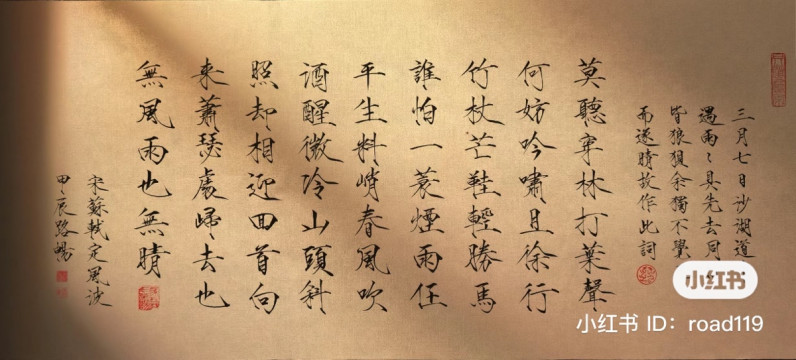 三月七日沙湖道
遇雨〻具先去同
皆狼狽余獨不覺
而遂晴故作此詞
莫聽穿林打葉聲
何妨吟嘯且徐行
竹杖芒鞋輕勝馬
誰怕一蓑煙雨任
平生料峭春風吹
酒醒微冷山頭斜
照却相迎回首向
来蕭瑟處歸去也
無風雨也無晴
宋蘇軾定風波
甲辰路暢
小红书
小红书 ID: road119